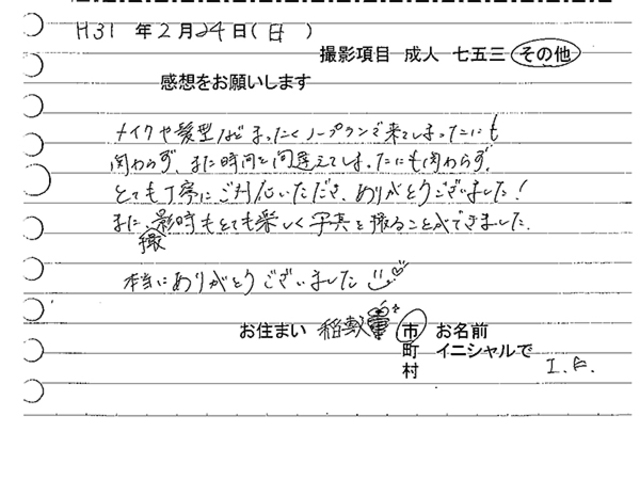 H31 年2月24日(日)
撮影項目 成人 七五三 その他
感想をお願いします
メイクや髪型などまったくノープランで来てしまったにも
関わらず、また時間を間違えてしまったにも関わらず、
とても丁寧にご対応いただき、ありがとうございました!
また撮影時もとても楽しく写真を撮ることができました。
本当にありがとうございました
お住まい 稲敷 市 お名前
町 イニシャルで
村 I.